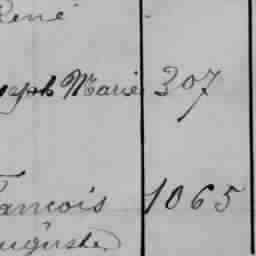 René
seph Marie 307
ançois 1065
Auguste